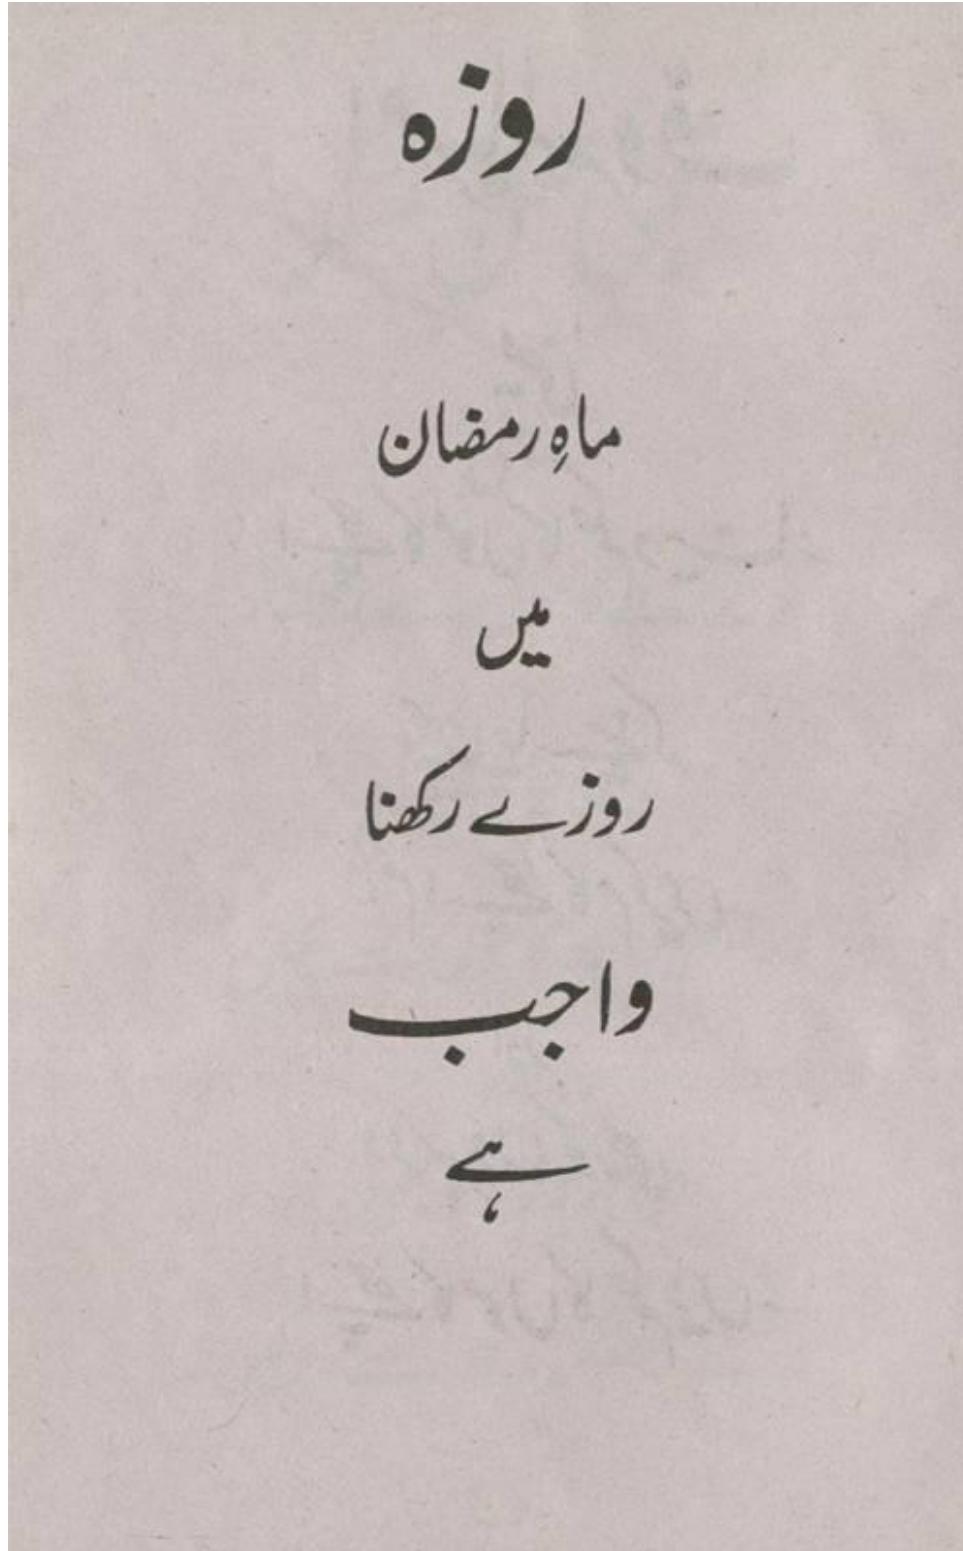 روزہ
ماہِ رمضان
میں
روزے رکھنا
واجب
ہے